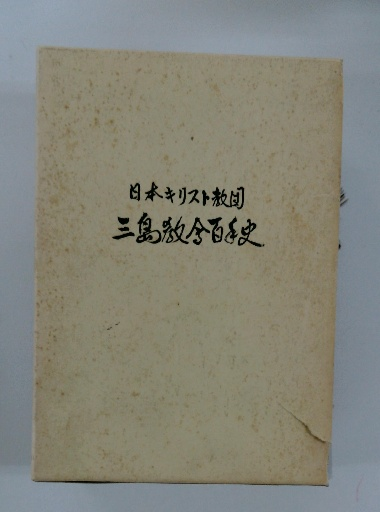 日本キリスト教団
三島教会百年史